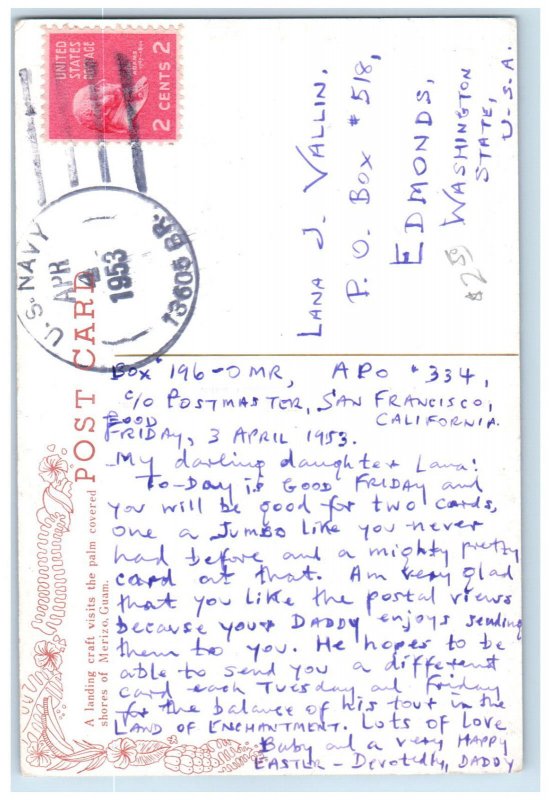 UNITED
STATES
POSTAGE
2 CENTS 2
U.S. NAVY
APR
4
1953
13605 BR.
LANA J. VALLIN,
P. O. BOX #518,
EDMONDS,
WASHINGTON
STATE,
U.S.A.
$2.50
POST CARD
A landing craft visits the palm covered
shores of Merizo, Guam.
BOX #196-OMR, APO #334,
c/o POSTMASTER, SAN FRANCISCO,
CALIFORNIA.
GOOD
FRIDAY, 3 APRIL 1953.
My darling daughter Lana:
TO-DAY is GOOD FRIDAY and
you will be good for two cards,
one a JUMBO like you never
had before and a mighty pretty
card at that. Am very glad
that you like the postal views
because your DADDY enjoys sending
them to you. He hopes to be
able to send you a different
card each Tuesday and Friday
for the balance of his tour in the
LAND OF ENCHANTMENT. Lots of Love
Baby and a very HAPPY
EASTER - Devotedly, DADDY